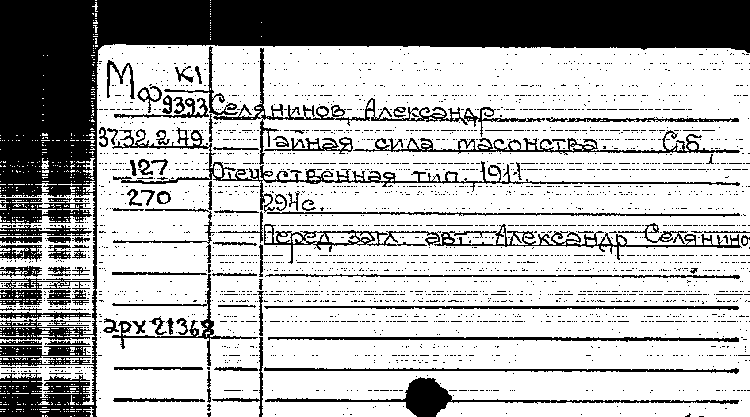 Мф К1
9393 Селянинов, Александр.
37.32.2.49. Тайная сила масонства. Спб.,
127 Отечественная тип., 1911.
270 294с.
Перед загл. авт.: Александр Селянино
арх 21368